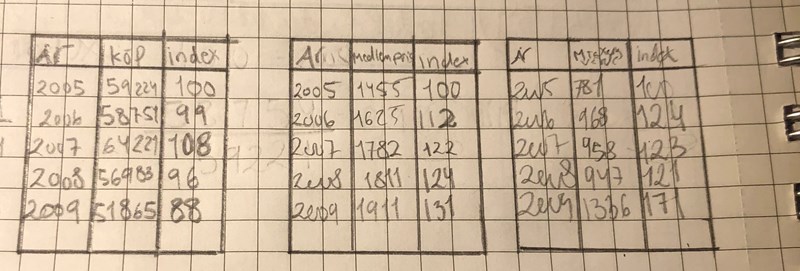 År köp index
2005 59224 100
2006 58751 99
2007 64221 108
2008 56983 96
2009 51865 88
År Medianpris index
2005 1455 100
2006 1625 112
2007 1782 122
2008 1811 124
2009 1911 131
År index
2005 781 100
2006 968 124
2007 958 123
2008 947 121
2009 1336 171